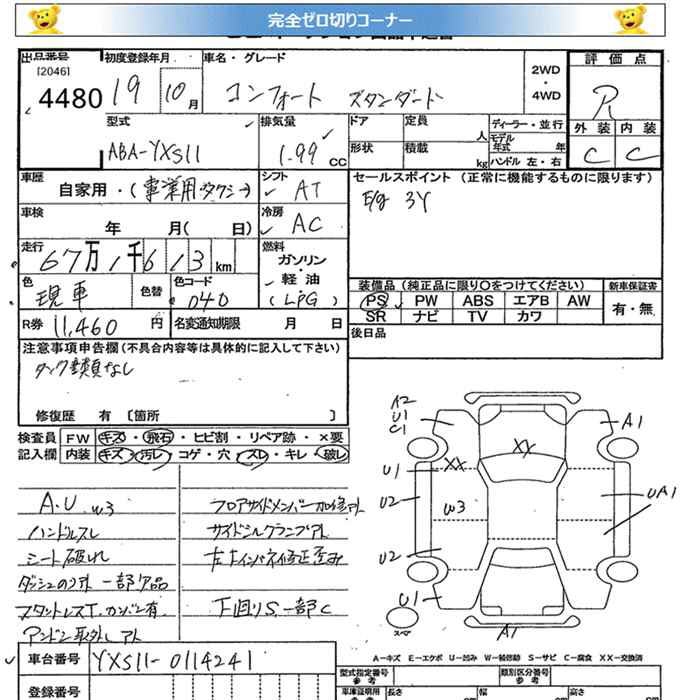 完全ゼロ切りコーナー
出品番号 初度登録年月 車名・グレード 2WD・4WD 評価点
[2046]
4480 19 10月 コンフォート スタンダード R
型式 排気量 ドア 定員 人 ディーラー・並行 外装 内装
ABA-YXS11 1.99 CC 形状 積載 kg モデル年式 年 ハンドル 左・右 C C
車歴 自家用・(事業用タクシー) シフト AT セールスポイント (正常に機能するものに限ります)
車検 年 月( 日) 冷房 AC E/g 3Y
走行 67万1千613km 燃料 ガソリン・軽油 (LPG)
色 現車 色替 色コード 040 装備品 (純正品に限り〇をつけてください) 新車保証書
PS PW ABS エアB AW 有・無
SR ナビ TV カワ
R券 11,460円 名変通知期限 月 日 後日品
注意事項申告欄(不具合内容等は具体的に記入して下さい)
タンク書類なし
修復歴 有 〔箇所 〕
検査員 FW キズ・飛石・ヒビ割・リペア跡・×要
記入欄 内装 キズ・汚レ・コゲ・穴・スレ・キレ・破レ
A2
U1
C1
A1
XY
U1 XX
U2 W3 UA1
U2
U1
スペア
A1
A.U W3 フロアサイドメンバー加修アト
ハンドルスレ サイドシルクランプアト
シート破れ
ダッシュのり跡 一部欠品
スタットレスT.カンバン有 下回りS.一部C
アンドン取外しアト
車台番号 YXS11-0114241
登録番号
A-キズ E-エクボ U-凹み W-補修跡 S-サビ C-腐食 XX-交換済
型式指定番号 参考 類別区分番号 参考
車庫証明用 長さ 幅 高さ